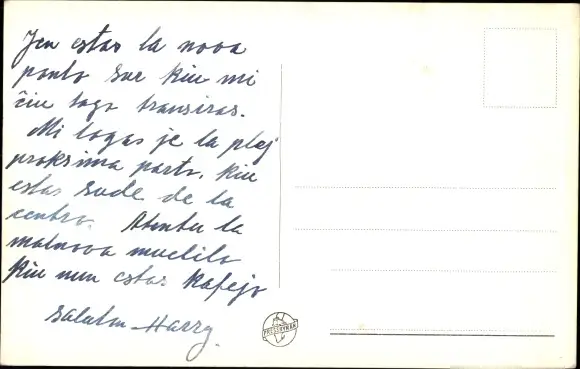 Jen estas la nova
ponto sur kiu mi
ĉiu tago transiras.
Mi logas je la plej
proksima parto, kiu
estas sude de la
centro. Atentu la
malnova muelilo
kiu nun estas kafejo
Saluton Harry.